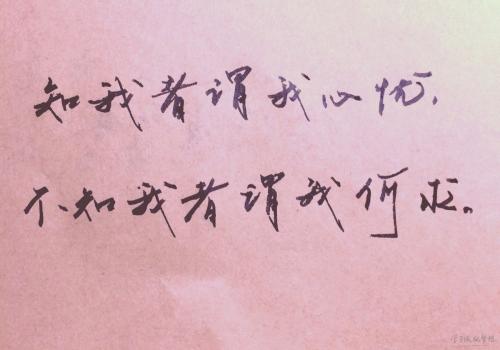 知我者谓我心忧，
不知我者谓我何求。